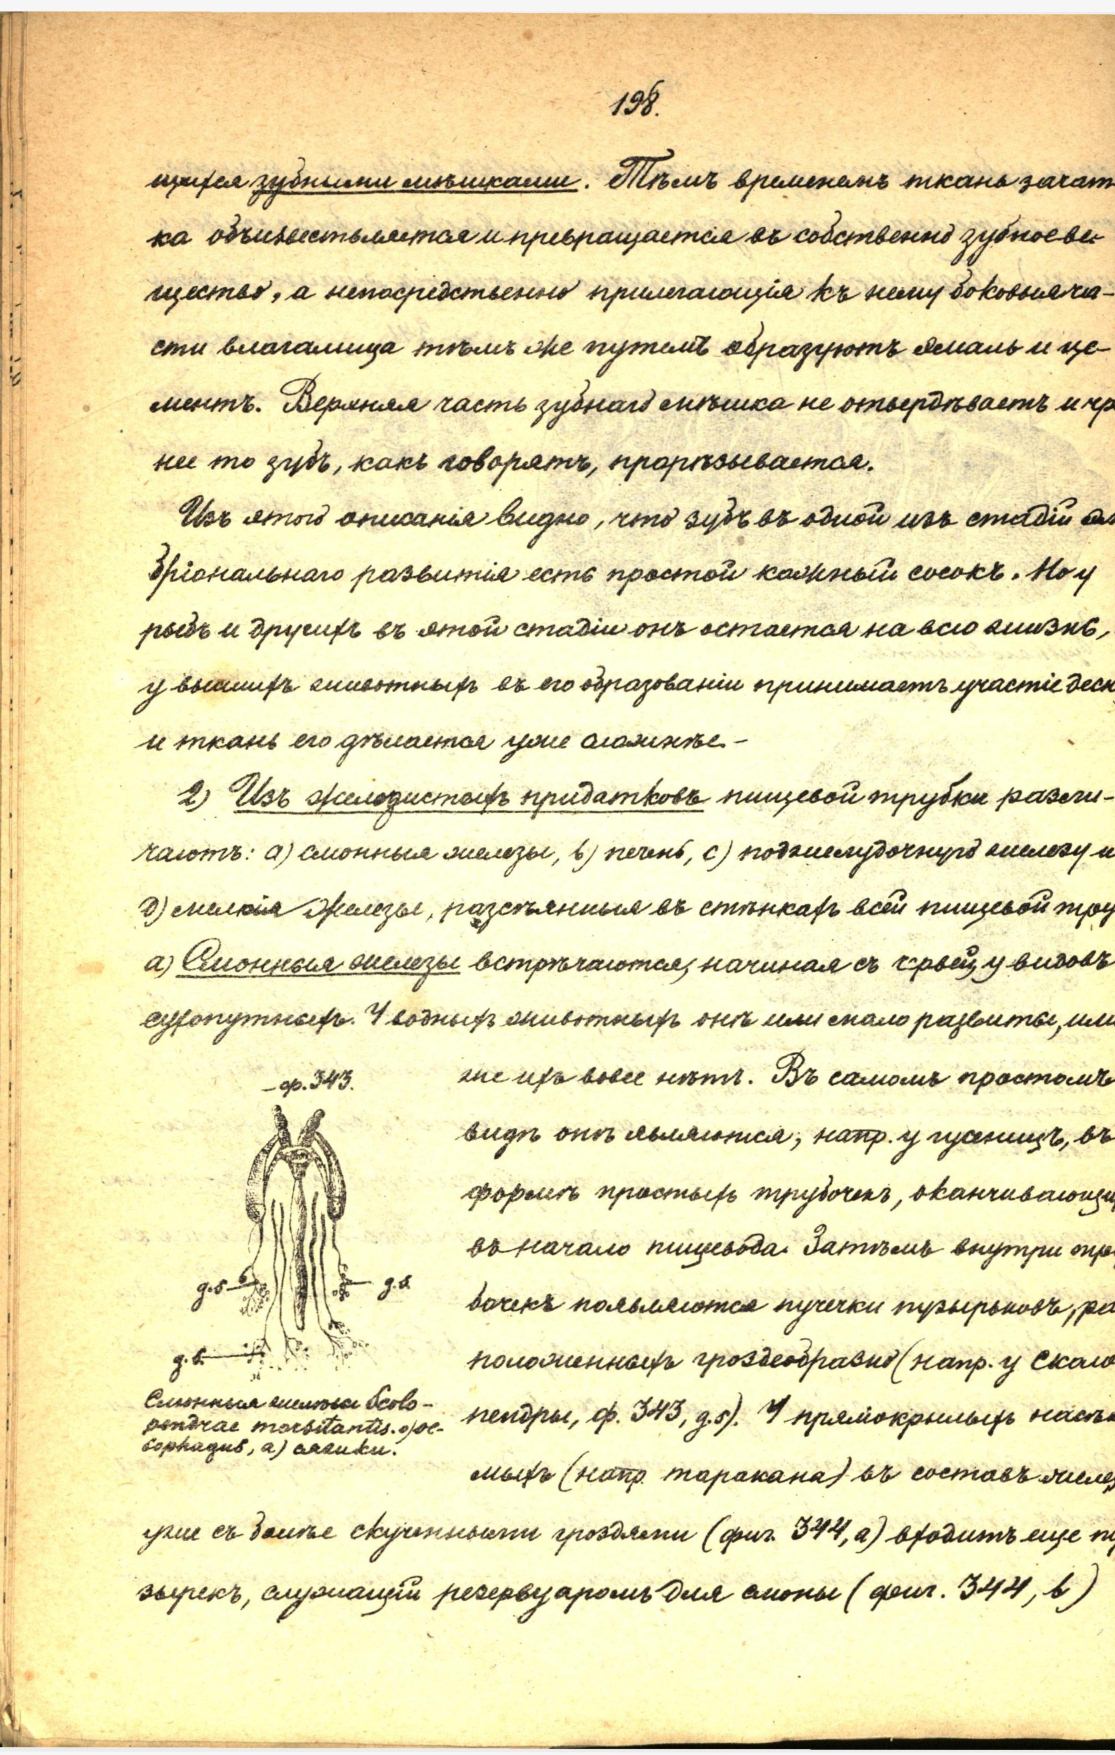 198.
щихся зубными мѣшками. Тѣмъ временемъ ткань зачат
ка объизвествляется и превращается въ собственно зубное ве-
щество, а непосредственно прилегающія къ нему боковыя ча-
сти влагалища тѣмъ же путемъ образуютъ эмаль и це-
ментъ. Верхняя часть зубнаго мѣшка не отвердѣваетъ и чр
нее то зубъ, какъ говорятъ, прорѣзывается.
Изъ этого описанія видно, что зубъ въ одной изъ стадій эм
бріональнаго развитія есть простой кожный сосокъ. Но у
рыбъ и другихъ въ этой стадіи онъ остается на всю жизнь,
у высшихъ животныхъ въ его образованіи принимаетъ участіе десн
и ткань его дѣлается уже сложнѣе.-
2) Изъ железистыхъ придатковъ пищевой трубки разли-
чаютъ: а) слюнныя железы, b) печень, c) поджелудочную железу и
d) мелкія железы, разсѣянныя въ стѣнкахъ всей пищевой тру
а) Слюнныя железы встрѣчаются, начиная съ червей, у видовъ
сухопутныхъ. У водныхъ животныхъ онѣ или мало развиты, или
же ихъ вовсе нѣтъ. Въ самомъ простомъ
видѣ онѣ являются, напр. у гусеницъ, въ
формѣ простыхъ трубочекъ, оканчивающи
въ начало пищевода. Затѣмъ внутри тру
бочекъ появляются пучечки пузырьковъ, ра
положенныхъ гроздеобразно (напр. у Сколо
пендры, ф. 343, g.s). У прямокрылыхъ насѣко
мыхъ (напр. таракана) въ составъ желез
ф. 343.
g.s
g.s.
g.s.
Слюнныя железы Scolo-
pendrae morsitantis. o) oe-
sophagus, a) сяжки.
уже съ болѣе скученными гроздями (фиг. 344, а) входитъ еще пу
зырекъ, служащій резервуаромъ для слюны (фиг. 344, b)